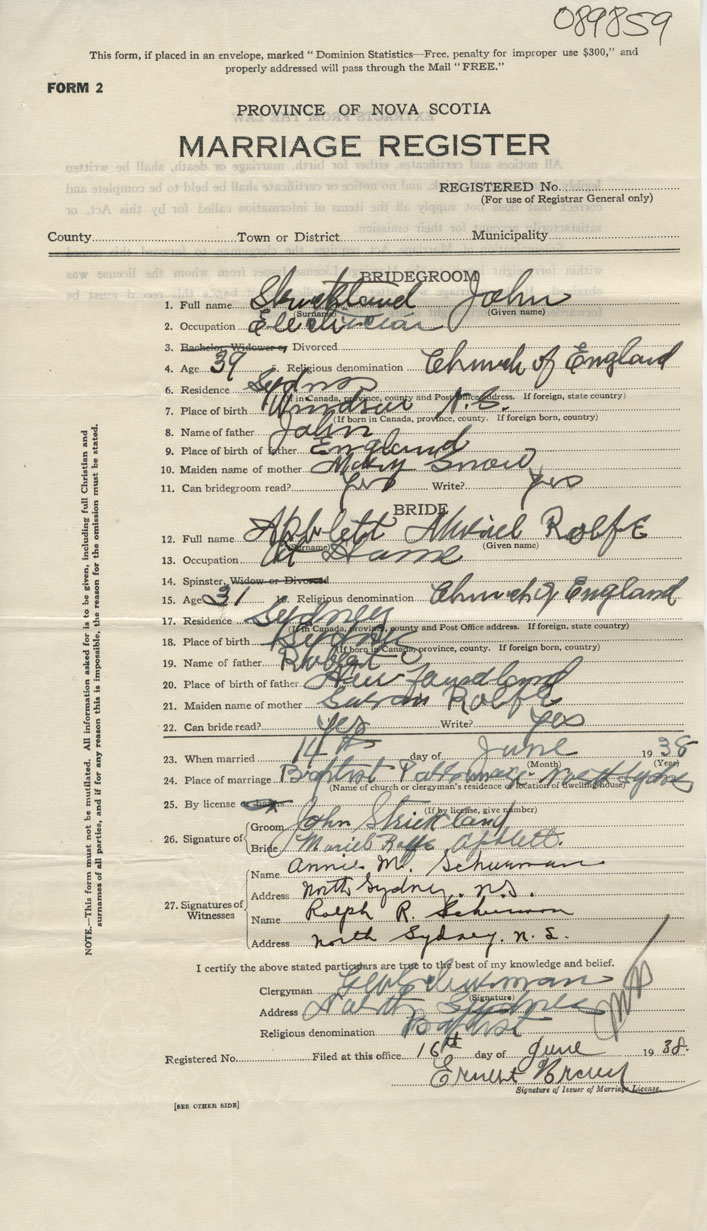 089859
This form, if placed in an envelope, marked "Dominion Statistics—Free, penalty for improper use $300," and
properly addressed will pass through the Mail "FREE."
FORM 2
PROVINCE OF NOVA SCOTIA
MARRIAGE REGISTER
REGISTERED No.
(For use of Registrar General only)
County Town or District Municipality
BRIDEGROOM
1. Full name Strickland John
(Surname) (Given name)
2. Occupation Electrician
3. Bachelor, Widower or Divorced
4. Age 39 5. Religious denomination Church of England
6. Residence Sydney
(If in Canada, province, county and Post Office address. If foreign, state country)
7. Place of birth Windsor N.S.
(If born in Canada, province, county. If foreign born, country)
8. Name of father John
9. Place of birth of father England
10. Maiden name of mother Mary Snow
11. Can bridegroom read? Yes Write? Yes
BRIDE
12. Full name Aplett Muriel Rolfe
(Surname) (Given name)
13. Occupation At Home
14. Spinster, Widow or Divorced
15. Age 31 16. Religious denomination Church of England
17. Residence Sydney
(If in Canada, province, county and Post Office address. If foreign, state country)
18. Place of birth Sydney
(If born in Canada, province, county. If foreign born, country)
19. Name of father Robert
20. Place of birth of father New Foundland
21. Maiden name of mother Susan Rolfe
22. Can bride read? Yes Write? Yes
23. When married 14th day of June 1938
(Month) (Year)
24. Place of marriage Baptist Parsonage North Sydney
(Name of church or clergyman's residence or location of dwelling house)
25. By license or banns
(If by license, give number)
26. Signature of
Groom John Strickland
Bride Muriel Rolfe Aplett.
27. Signatures of Witnesses
Name Annie M. Schurman
Address North Sydney, N.S.
Name Ralph R. Schurman
Address North Sydney, N.S.
I certify the above stated particulars are true to the best of my knowledge and belief.
Clergyman Schurman
(Signature)
Address North Sydney
Religious denomination Baptist
Registered No. Filed at this office 16th day of June 1938.
Ernest
Signature of Issuer of Marriage License.
[SEE OTHER SIDE]
NOTE.—This form must not be mutilated. All information asked for is to be given, including full Christian and
surnames of all parties, and if for any reason this is impossible, the reason for the omission must be stated.